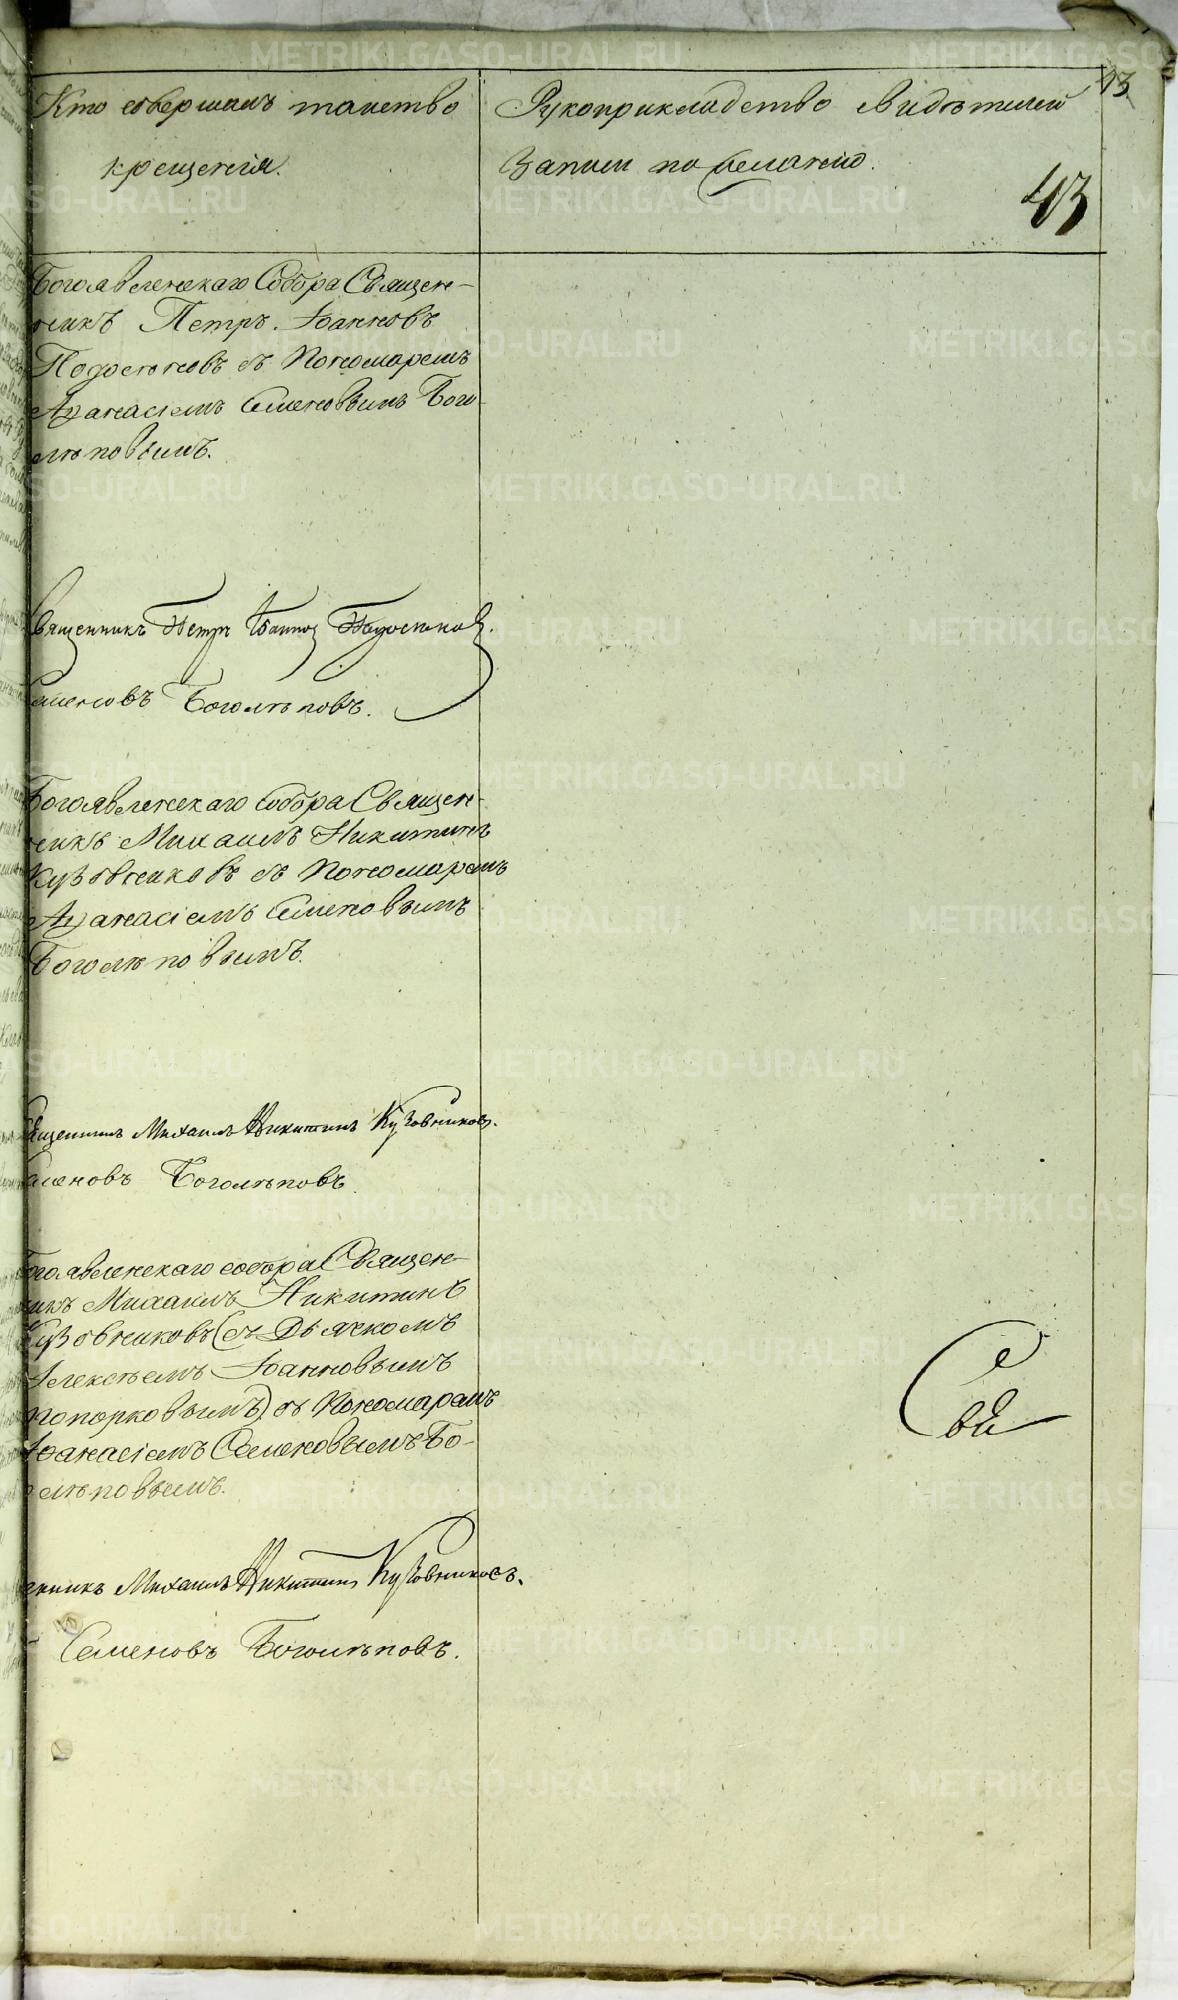 13
Кто совершалъ таинство
крещенія.
Рукоприкладство свидѣтелей
записи по желанію.
43
Богоявленскаго Собора Священ-
никъ Петръ Іоанновъ
съ Пономаремъ
Аѳанасіемъ Семеновымъ Бого-
лѣповымъ.
Священникъ Петръ Іоаннов
Семеновъ Боголѣповъ.
Богоявленскаго Собора Священ-
никъ Михаилъ Никитинъ
Кузовниковъ съ Пономаремъ
Аѳанасіемъ Семеновымъ
Боголѣповымъ.
Священникъ Михаилъ Никитинъ Кузовниковъ.
Семеновъ Боголѣповъ
Богоявленскаго собора Священ-
никъ Михаилъ Никитинъ
Кузовниковъ (съ Дьячкомъ
Алексѣемъ Іоанновымъ
Топорковымъ) съ Пономаремъ
Аѳанасіемъ Семеновымъ Бо-
голѣповымъ.
Священникъ Михаилъ Никитинъ Кузовниковъ.
Семеновъ Боголѣповъ.
METRIKI.GASO-URAL.RU